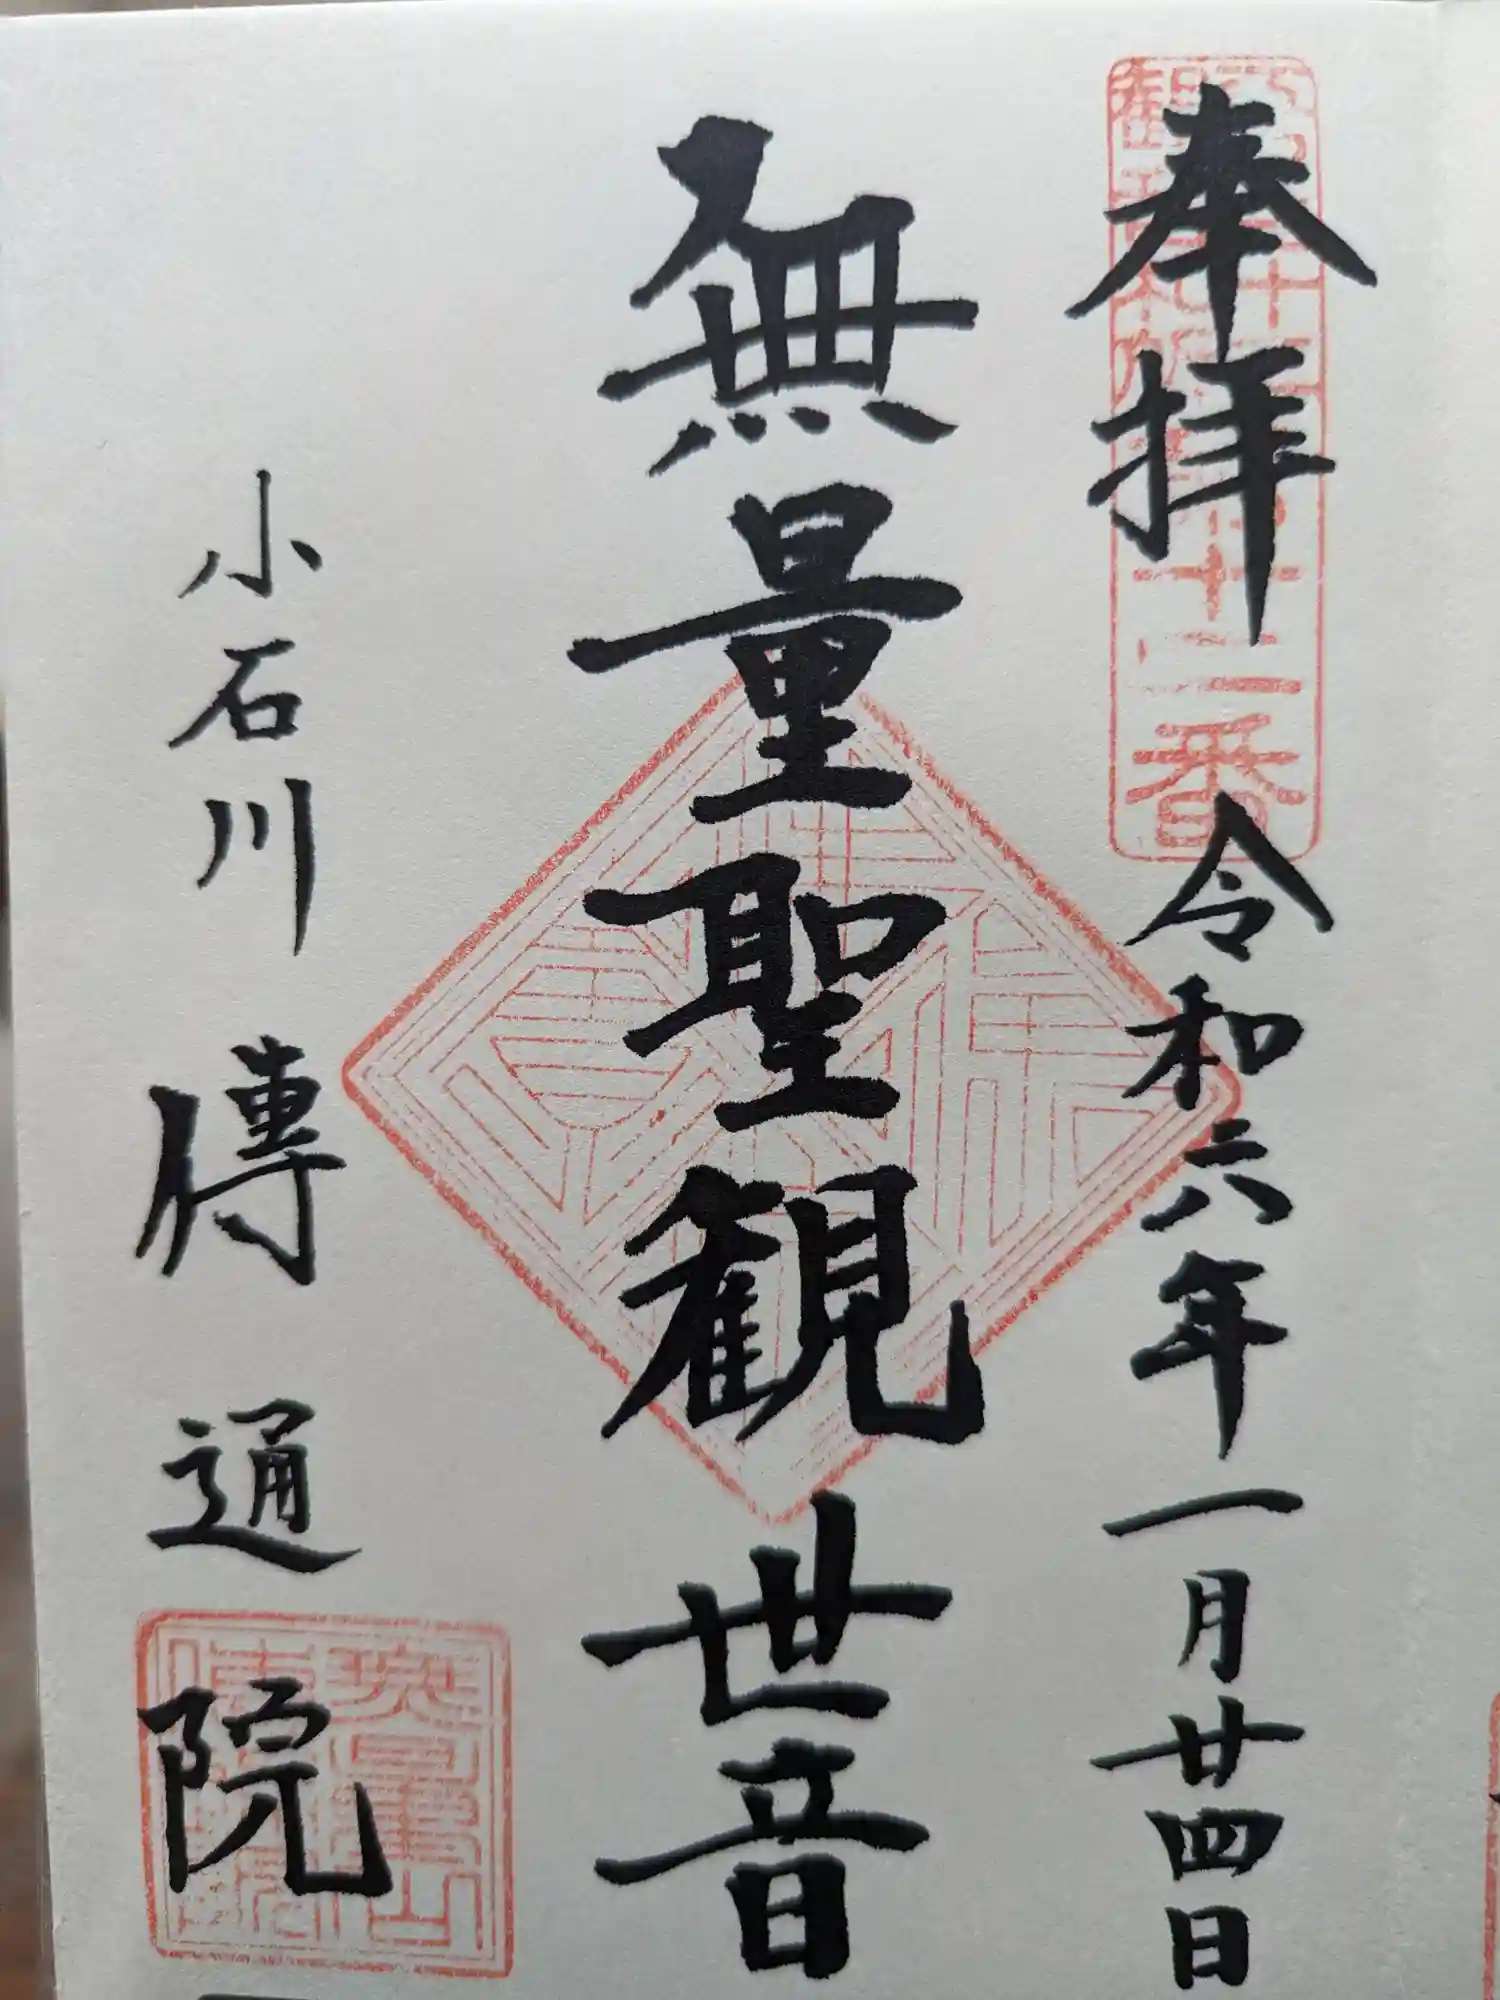 奉拝 令和六年一月廿四日
無量聖観世音
小石川 傳通院
無量山傳通院